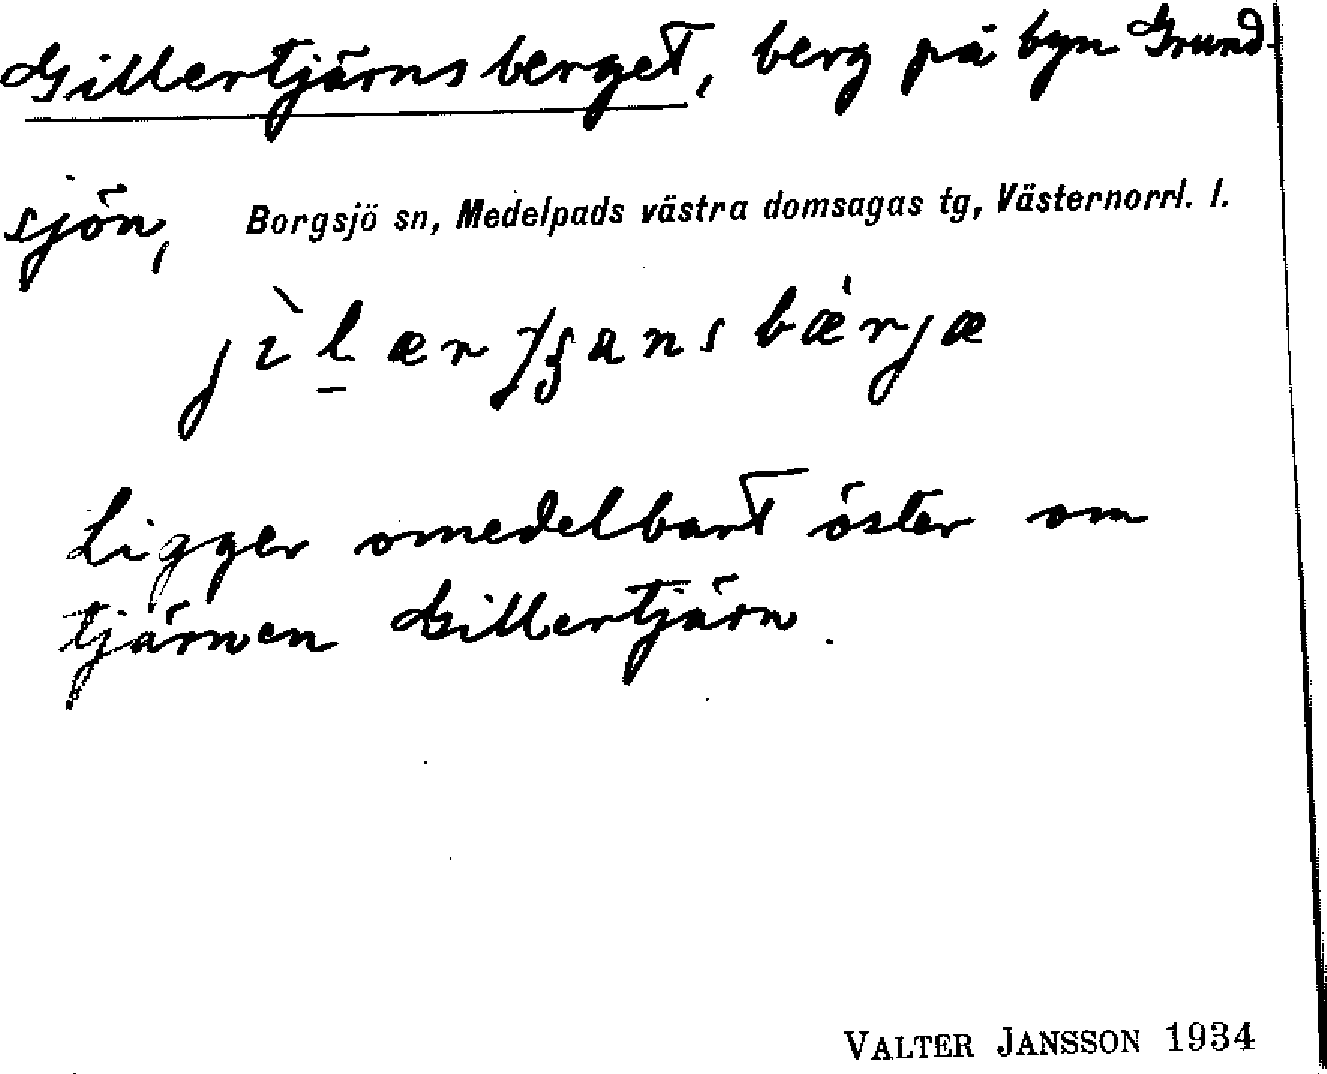 Gillertjärnsberget, berg på byn Grund-
sjön, Borgsjö sn, Medelpads västra domsagas tg, Västernorrl. l.
Ligger omedelbart öster om
tjärnen Gillertjärn.
VALTER JANSSON 1934